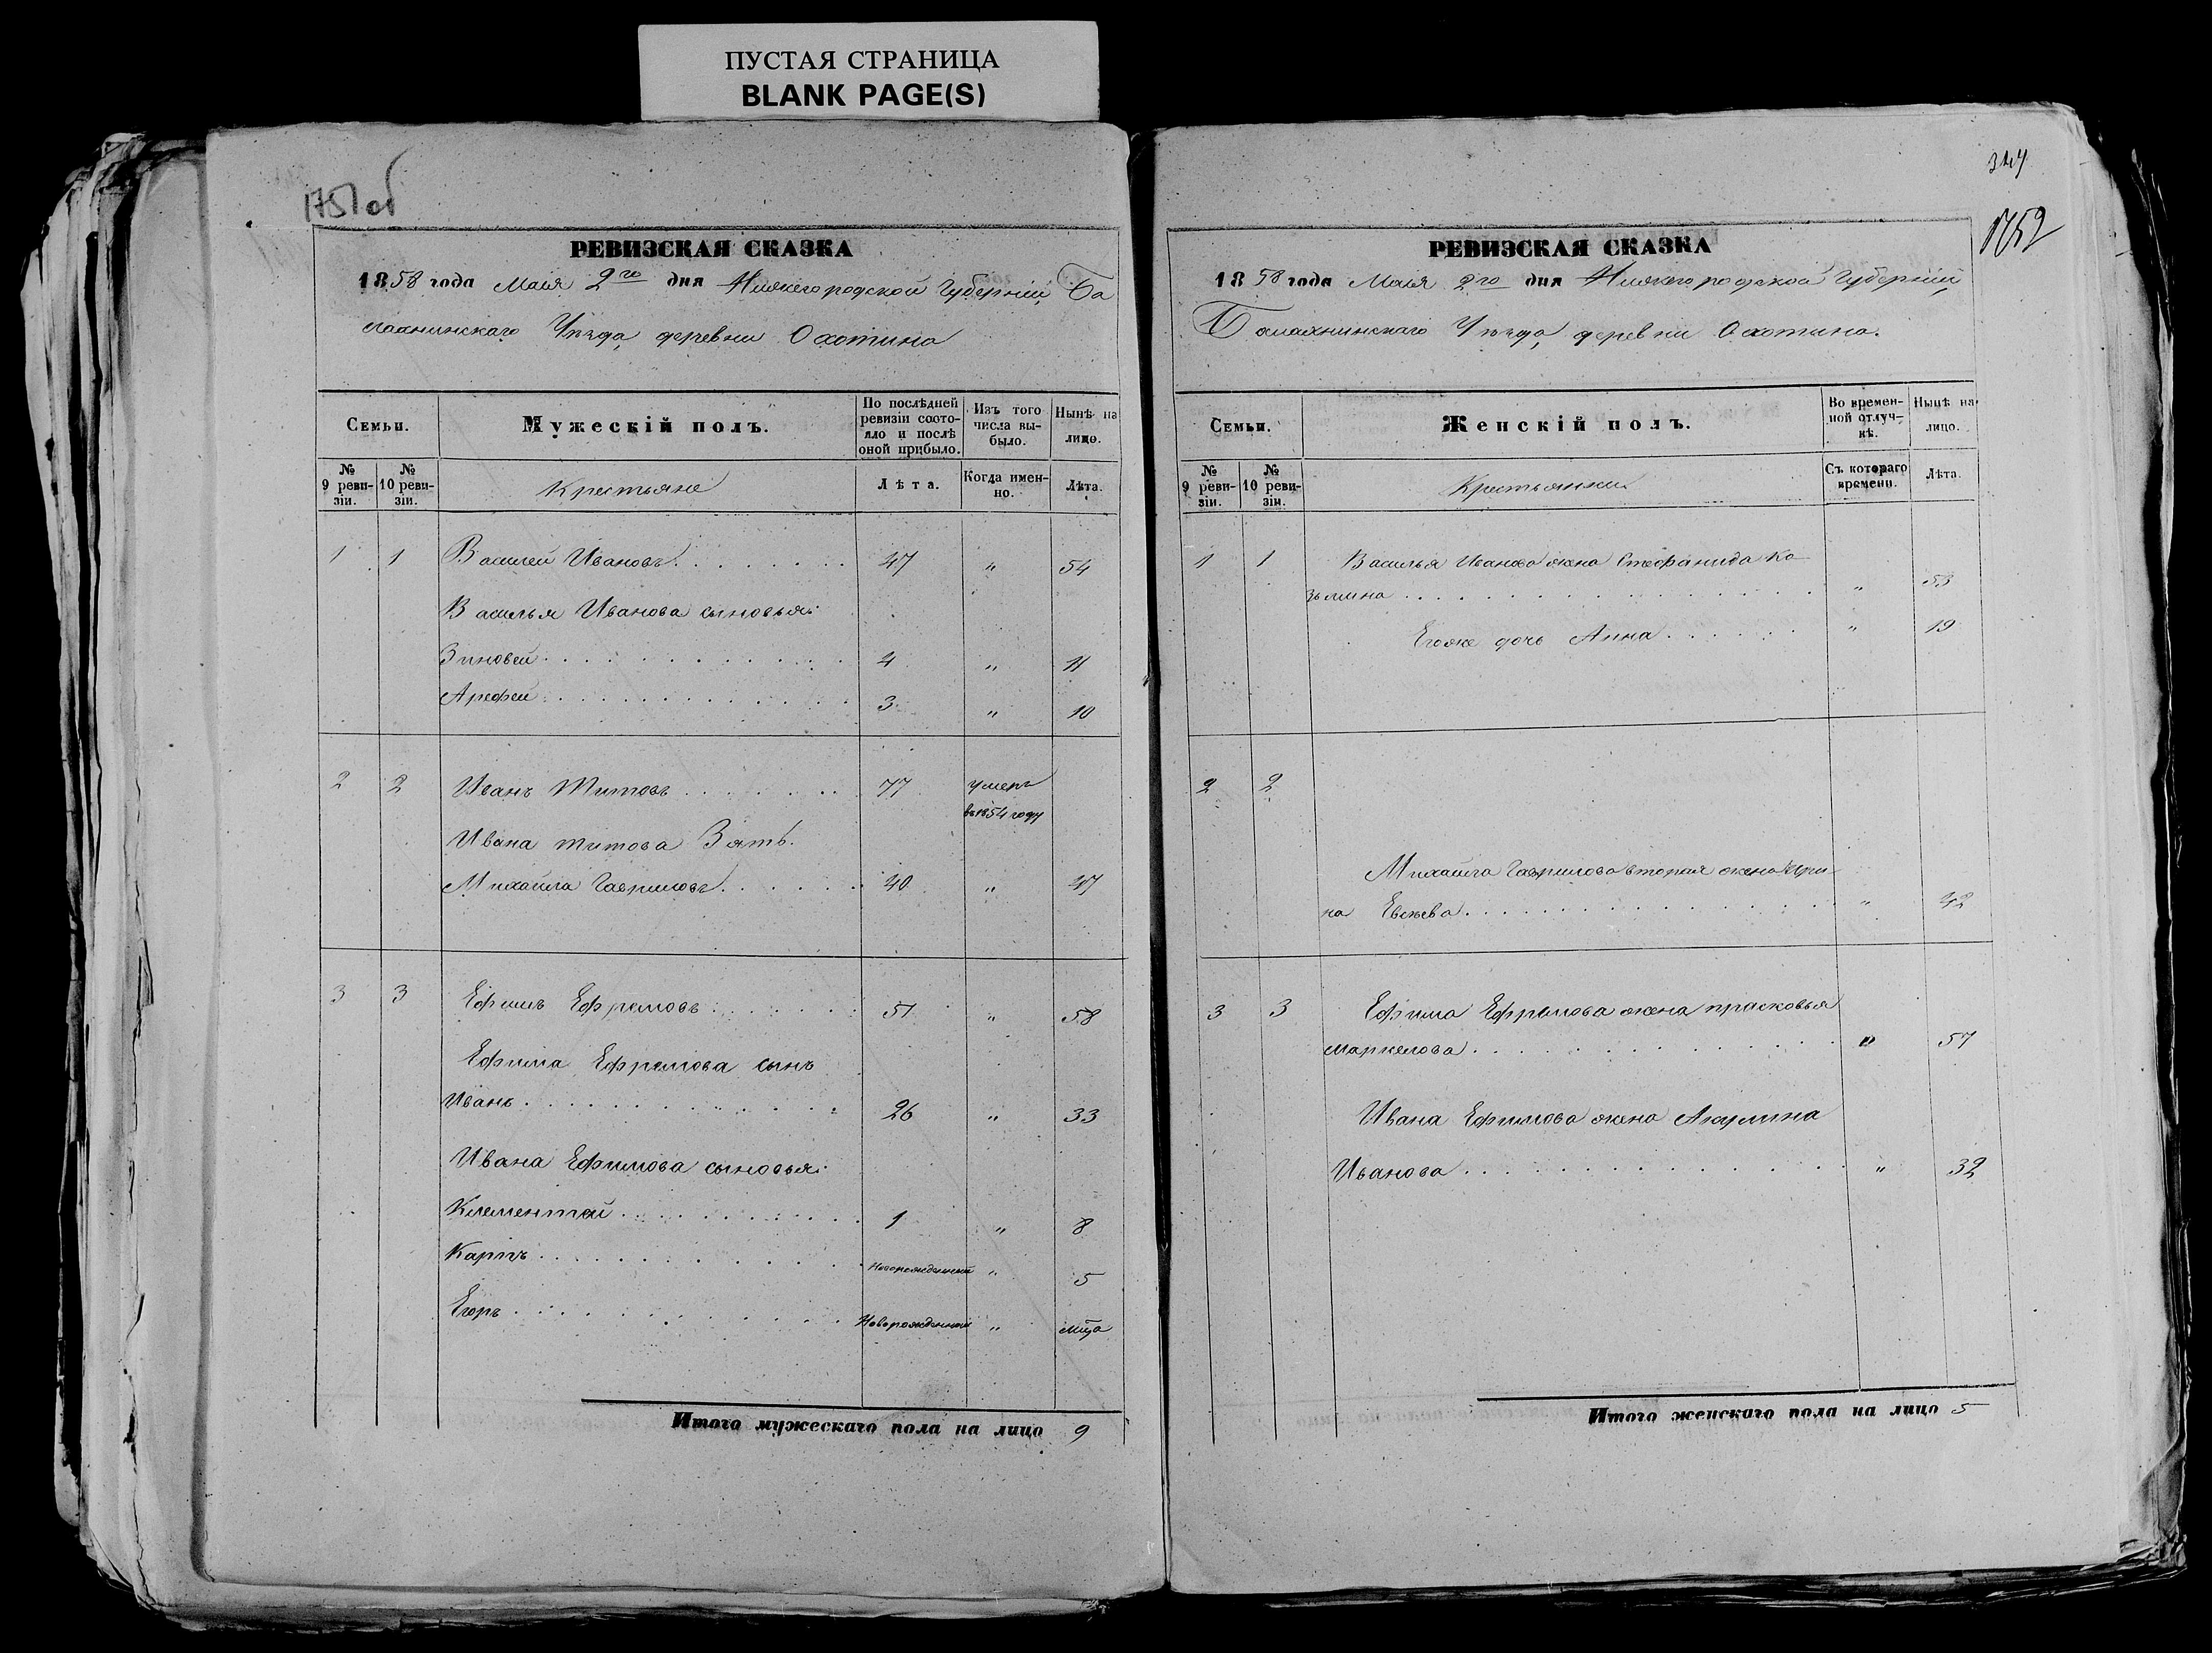 ПУСТАЯ СТРАНИЦА
BLANK PAGE(S)
1751об
РЕВИЗСКАЯ СКАЗКА
1858 года Маія 2го дня Нижегородской Губерніи Ба
лахнинскаго Уѣзда, деревни Охотина
Семьи.
Мужескій полъ.
По послѣдней ревизіи состояло и послѣ оной прибыло.
Изъ того числа выбыло.
Нынѣ на лицо.
№ 9 ревизіи.
№ 10 ревизіи.
Крестьяне
Лѣта.
Когда именно.
Лѣта.
1 1 Василей Ивановъ 47 " 54
Василья Иванова сыновья:
Зиновей 4 " 11
Арефей 3 " 10
2 2 Иванъ Титовъ 77 умеръ
въ 1854 году
Ивана титова Зять.
Михайла Гавриловъ 40 " 47
3 3 Ефимъ Ефремовъ 51 " 58
Ефима Ефремова сынъ
Иванъ 26 " 33
Ивана Ефимова сыновья:
Клементей 1 " 8
Карпъ Новорожденный " 5
Егоръ Новорожденный " мца
Итого мужескаго пола на лицо 9
347
1752
РЕВИЗСКАЯ СКАЗКА
1858 года Маія 2го дня Нижегородской Губерніи,
Балахнинскаго Уѣзда, деревни Охотина.
Семьи.
Женскій полъ.
Во временной отлучкѣ.
Нынѣ на лицо.
№ 9 ревизіи.
№ 10 ревизіи.
Крестьянки
Съ котораго времени.
Лѣта.
1 1 Василья Иванова жена Стефанида Ко
зьмина " 53
Егоже дочь Анна " 19
2 2
Михайла Гаврилова вторая жена Ири
на Евсѣева " 42
3 3 Ефима Ефремова жена прасковья
маркелова " 57
Ивана Ефимова жена Акулина
Иванова " 32
Итого женскаго пола на лицо 5